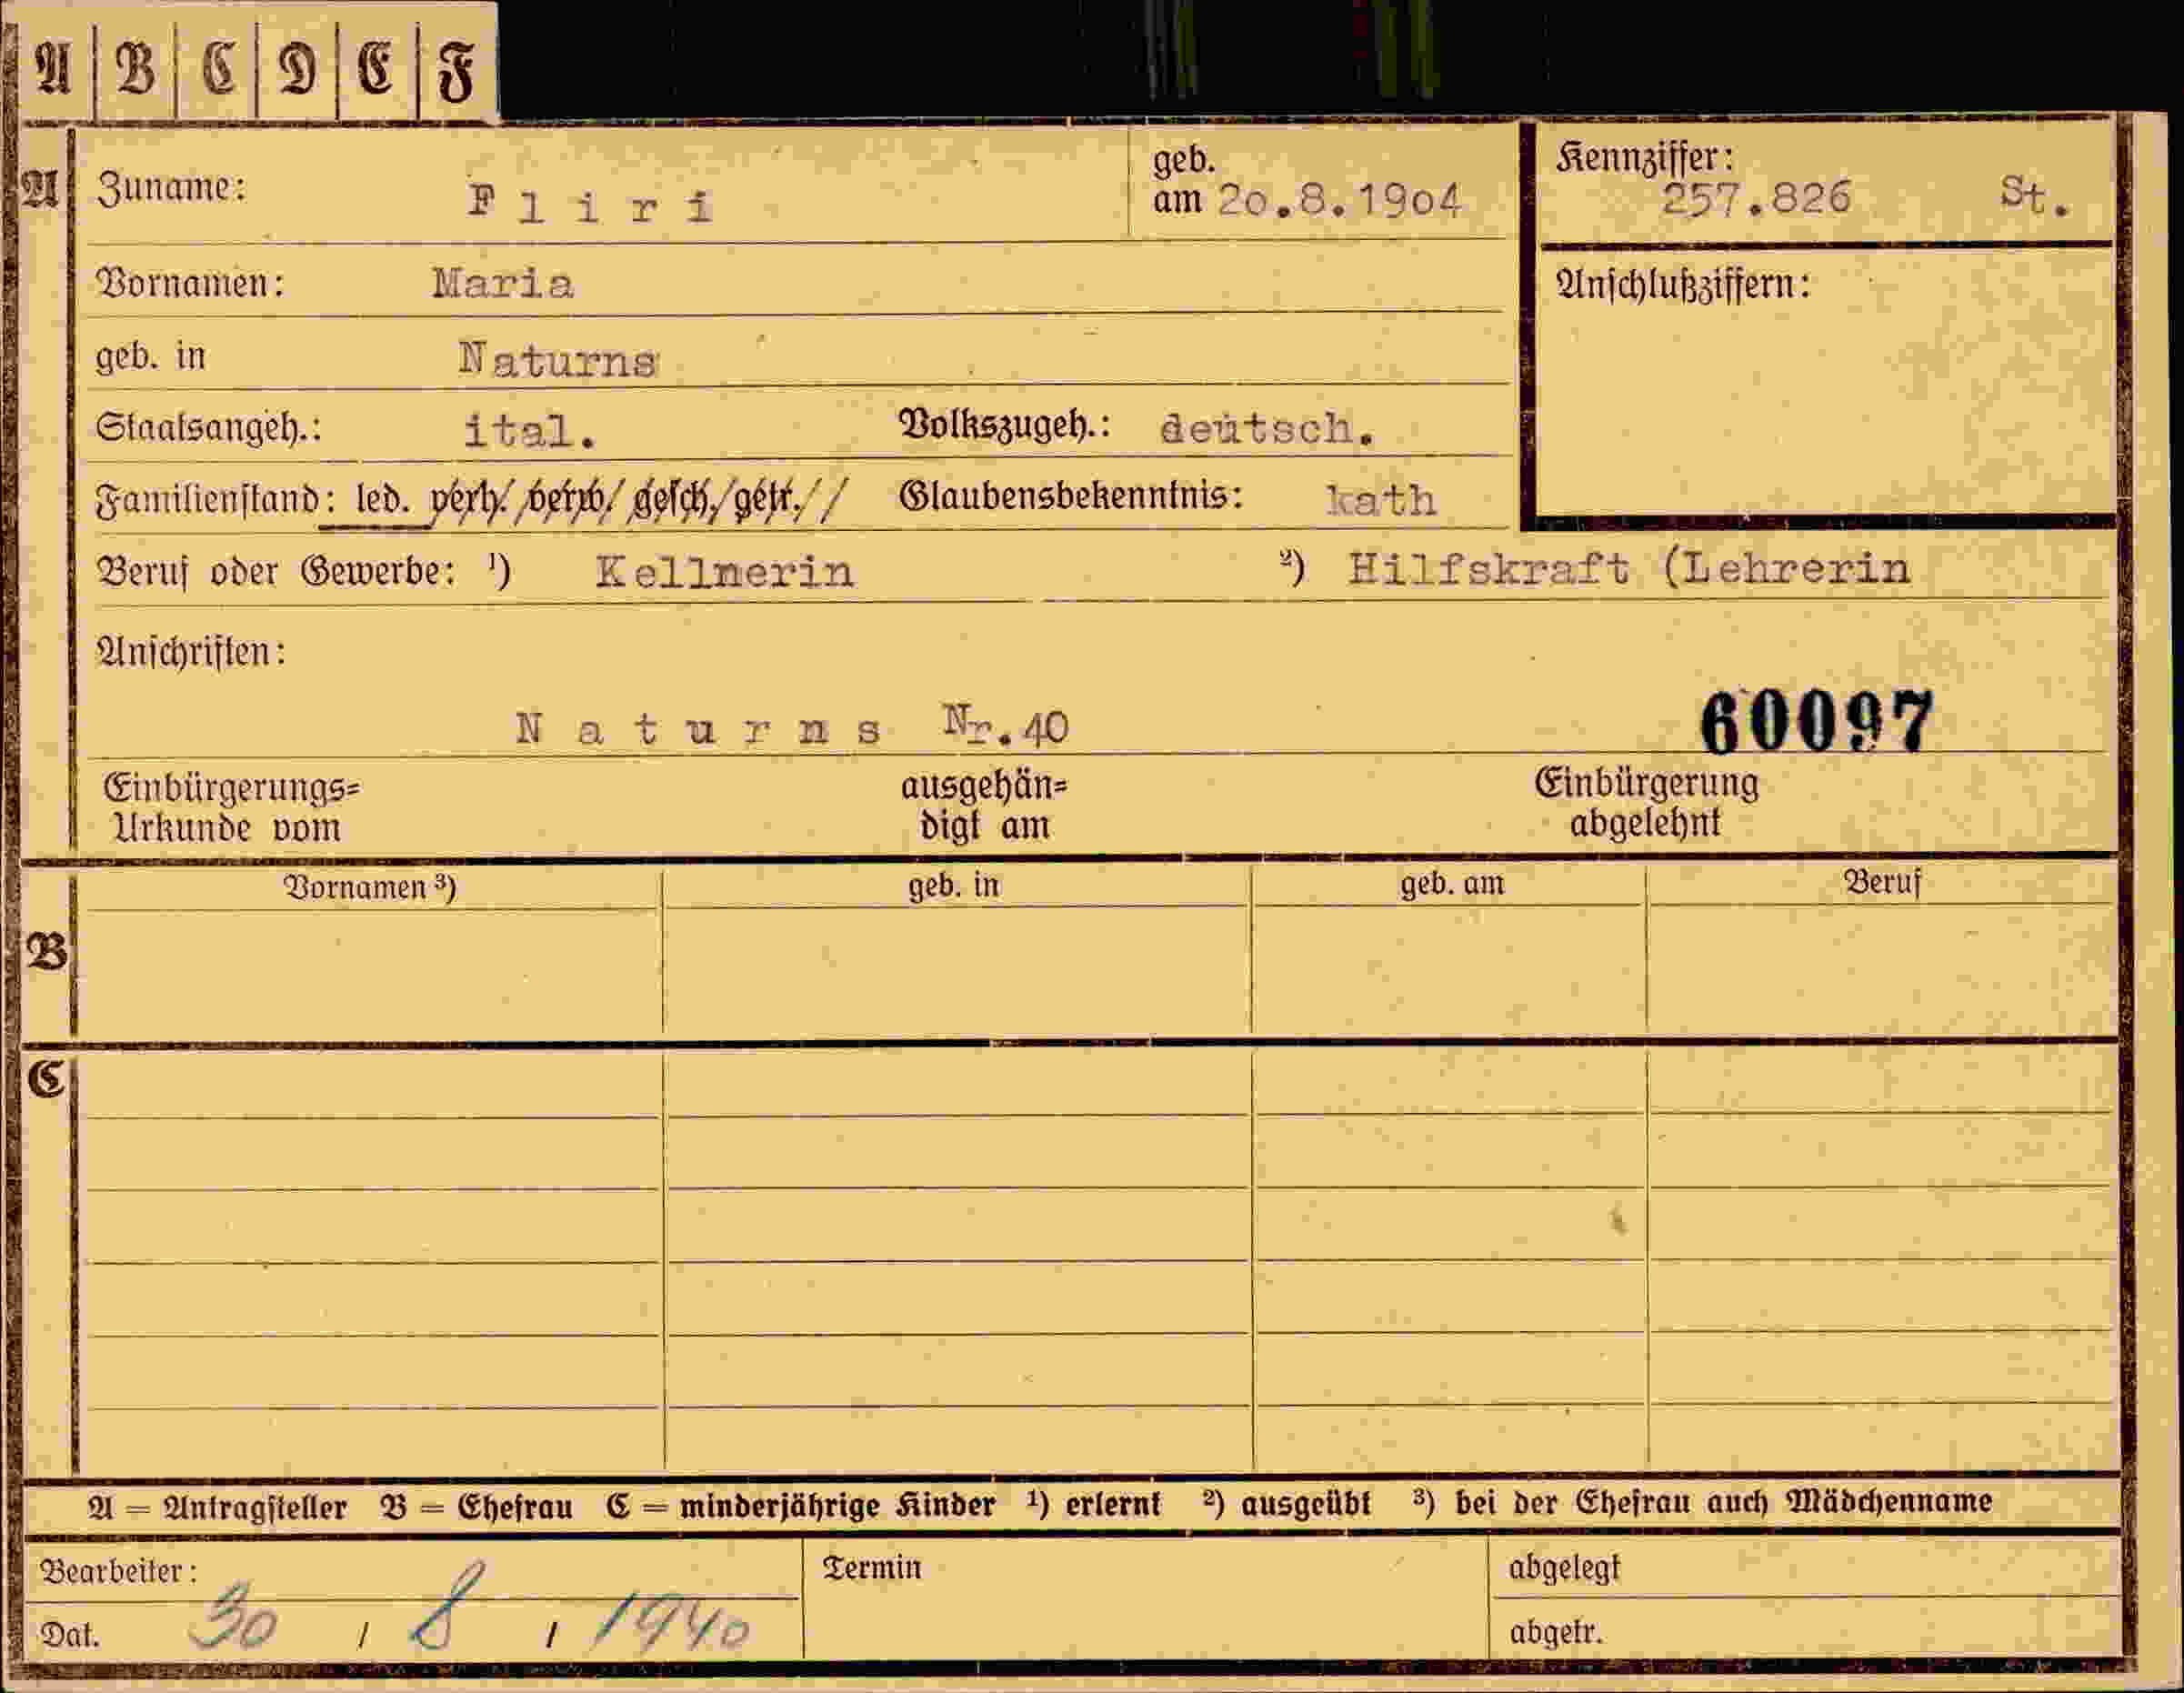 A B C D E F
A
Zuname: Fliri
geb.
am 20.8.1904
Kennziffer:
257.826 St.
Vornamen: Maria
Anschlußziffern:
geb. in Naturns
Staatsangeh.: ital. Volkszugeh.: deutsch.
Familienstand: led. verh. verw. gesch. getr. Glaubensbekenntnis: kath
Beruf oder Gewerbe: ¹) Kellnerin ²) Hilfskraft (Lehrerin
Anschriften:
Naturns Nr.40 60097
Einbürgerungs=
Urkunde vom
ausgehän=
digt am
Einbürgerung
abgelehnt
Vornamen ³) geb. in geb. am Beruf
B
C
A = Antragsteller B = Ehefrau C = minderjährige Kinder ¹) erlernt ²) ausgeübt ³) bei der Ehefrau auch Mädchenname
Bearbeiter: Termin abgelegt
Dat. 30 / 8 / 1940 abgetr.